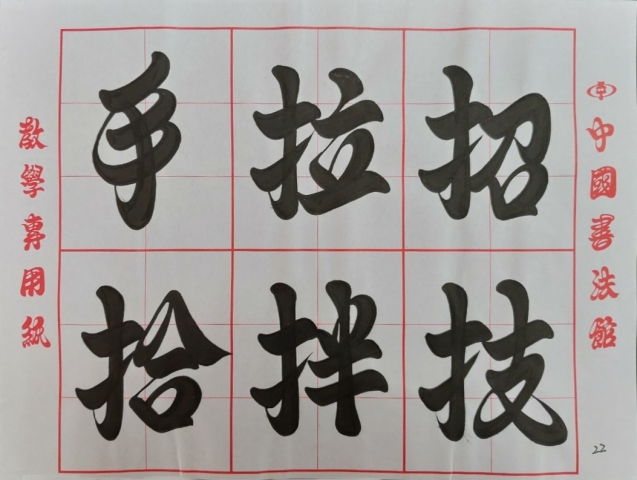 手拉招
拾拌技
教學專用紙
中國書法館
22